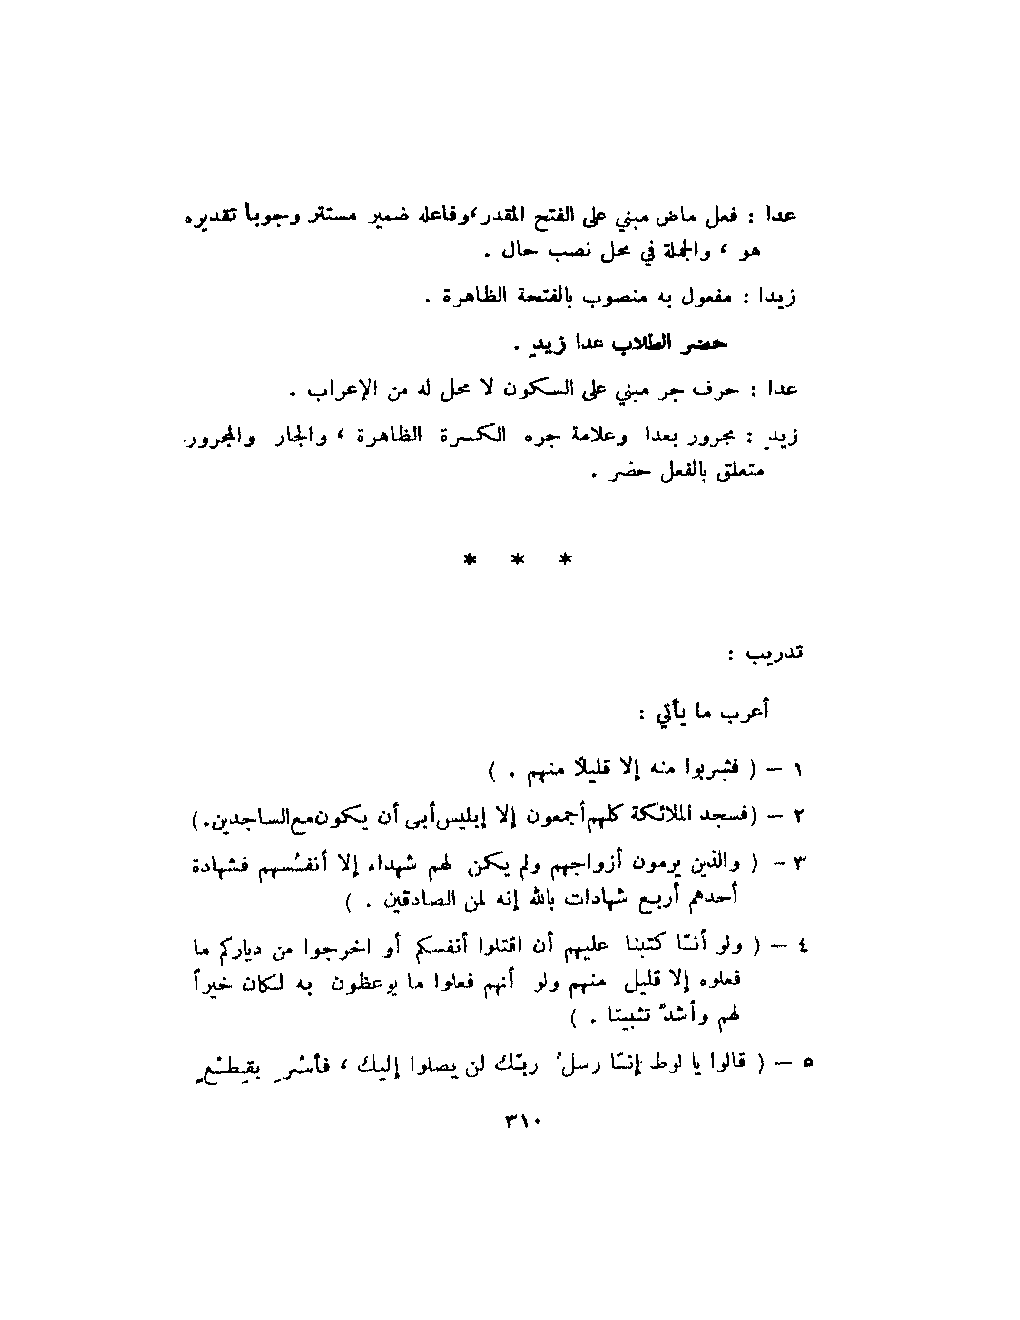 عدا : فعل ماض مبني على الفتح المقدر، وفاعله ضمير مستتر وجوبا تقديره
هو ، والجملة في محل نصب حال .
زيدا : مفعول به منصوب بالفتحة الظاهرة .
حضر الطلاب عدا زيدٍ .
عدا : حرف جر مبني على السكون لا محل له من الإعراب .
زيدٍ : مجرور بعدا وعلامة جره الكسرة الظاهرة ، والجار والمجرور
متعلق بالفعل حضر .
* * *
تدريب :
أعرب ما يأتي :
١ – ( فشربوا منه إلا قليلًا منهم . )
٢ – (فسجد الملائكة كلهم أجمعون إلا إبليس أبى أن يكون مع الساجدين.)
٣ – ( والذين يرمون أزواجهم ولم يكن لهم شهداء إلا أنفسُهم فشهادة
أحدهم أربع شهادات بالله إنه لمن الصادقين . )
٤ – ( ولو أنّا كتبنا عليهم أن اقتلوا أنفسكم أو اخرجوا من دياركم ما
فعلوه إلا قليل منهم ولو أنهم فعلوا ما يوعظون به لكان خيراً
لهم وأشدّ تثبيتا . )
٥ – ( قالوا يا لوط إنّا رسلُ ربّك لن يصلوا إليك ، فأسْرِ بقِطْعٍ
٣١٠